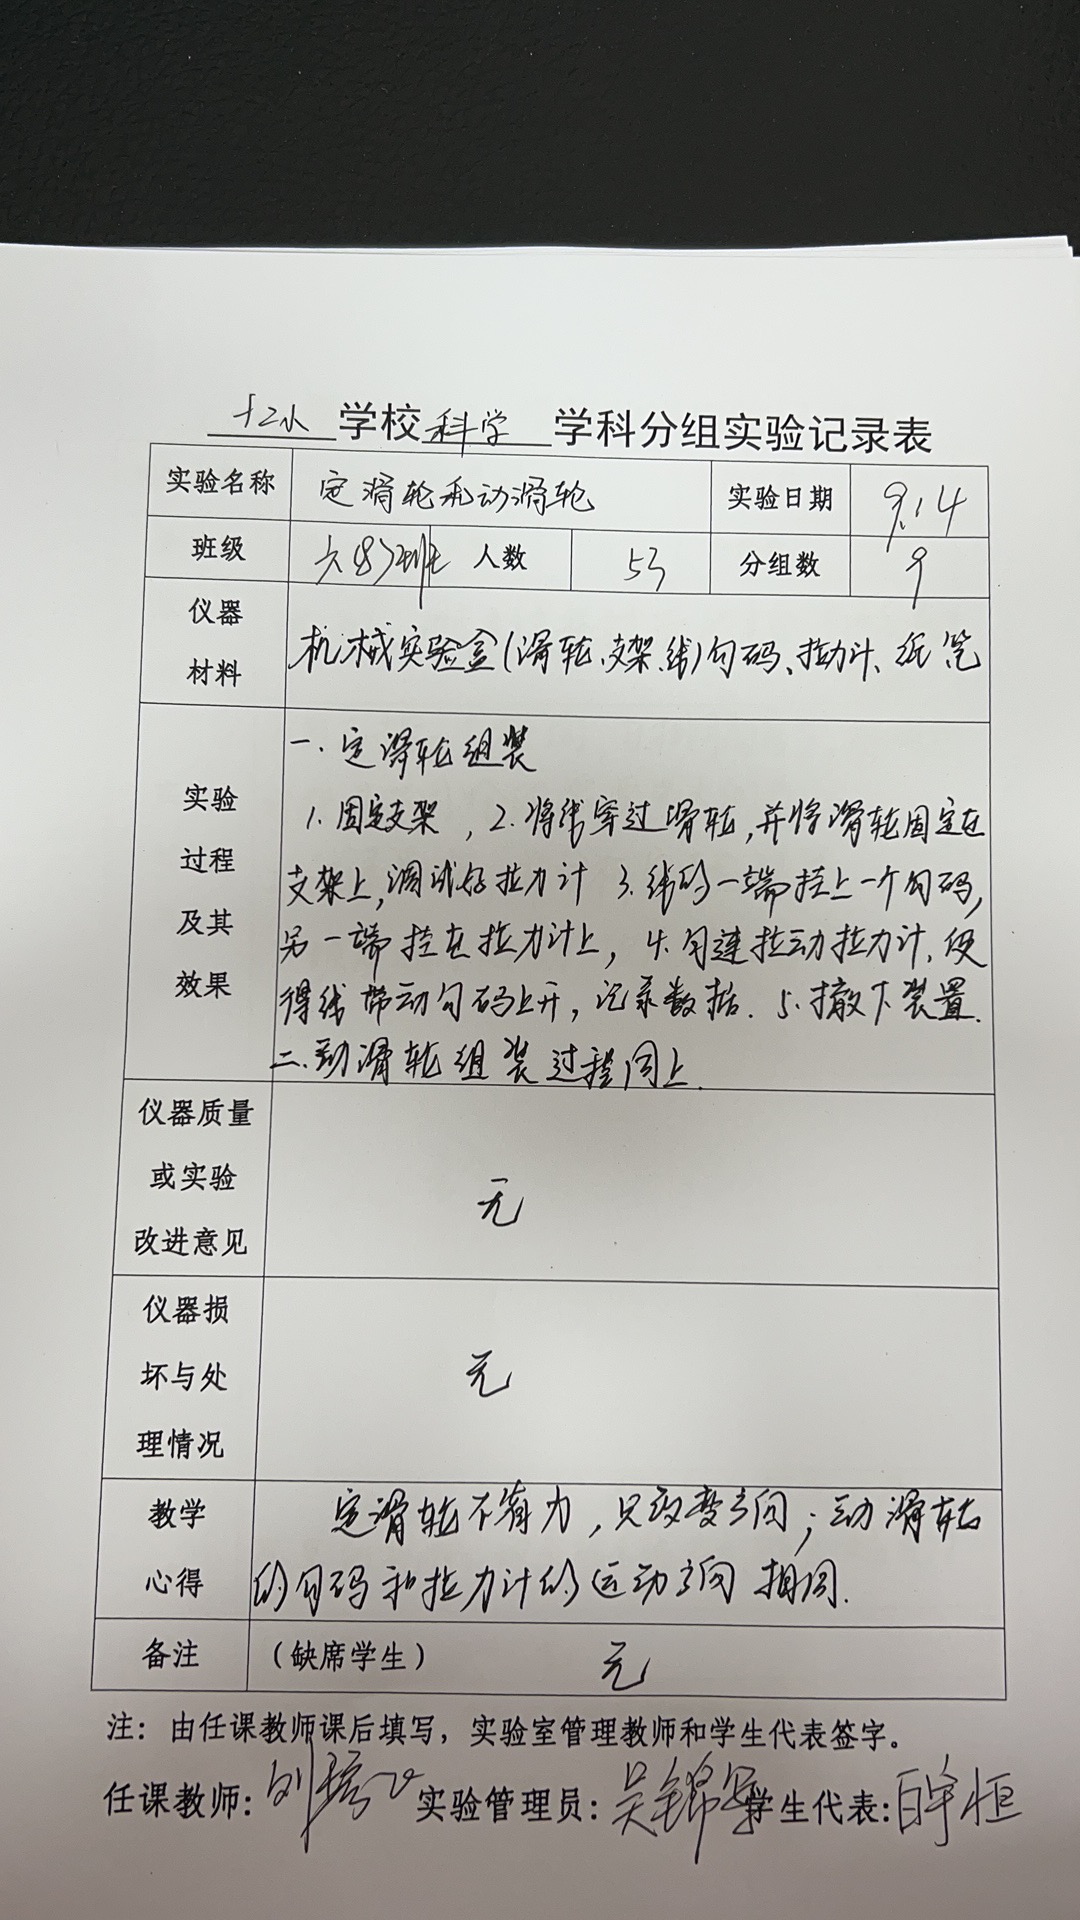 十二小学校科学学科分组实验记录表
实验名称 定滑轮和动滑轮 实验日期 9.14
班级 六(8)班 人数 53 分组数 9
仪器
材料
机械实验盒(滑轮、支架、线)勾码、拉力计、纸笔
实验
过程
及其
效果
一、定滑轮组装
1. 固定支架，2. 将线穿过滑轮,并将滑轮固定在
支架上,调试好拉力计 3. 线的一端挂上一个勾码,
另一端挂在拉力计上, 4. 匀速拉动拉力计,使
得线带动勾码上升, 记录数据. 5. 撤下装置.
二、动滑轮组装过程同上.
仪器质量
或实验
改进意见
无
仪器损
坏与处
理情况
无
教学
心得
定滑轮不省力, 只改变方向; 动滑轮
的勾码和拉力计的运动方向相同.
备注 (缺席学生) 无
注：由任课教师课后填写，实验室管理教师和学生代表签字。
任课教师: 实验管理员: 学生代表: